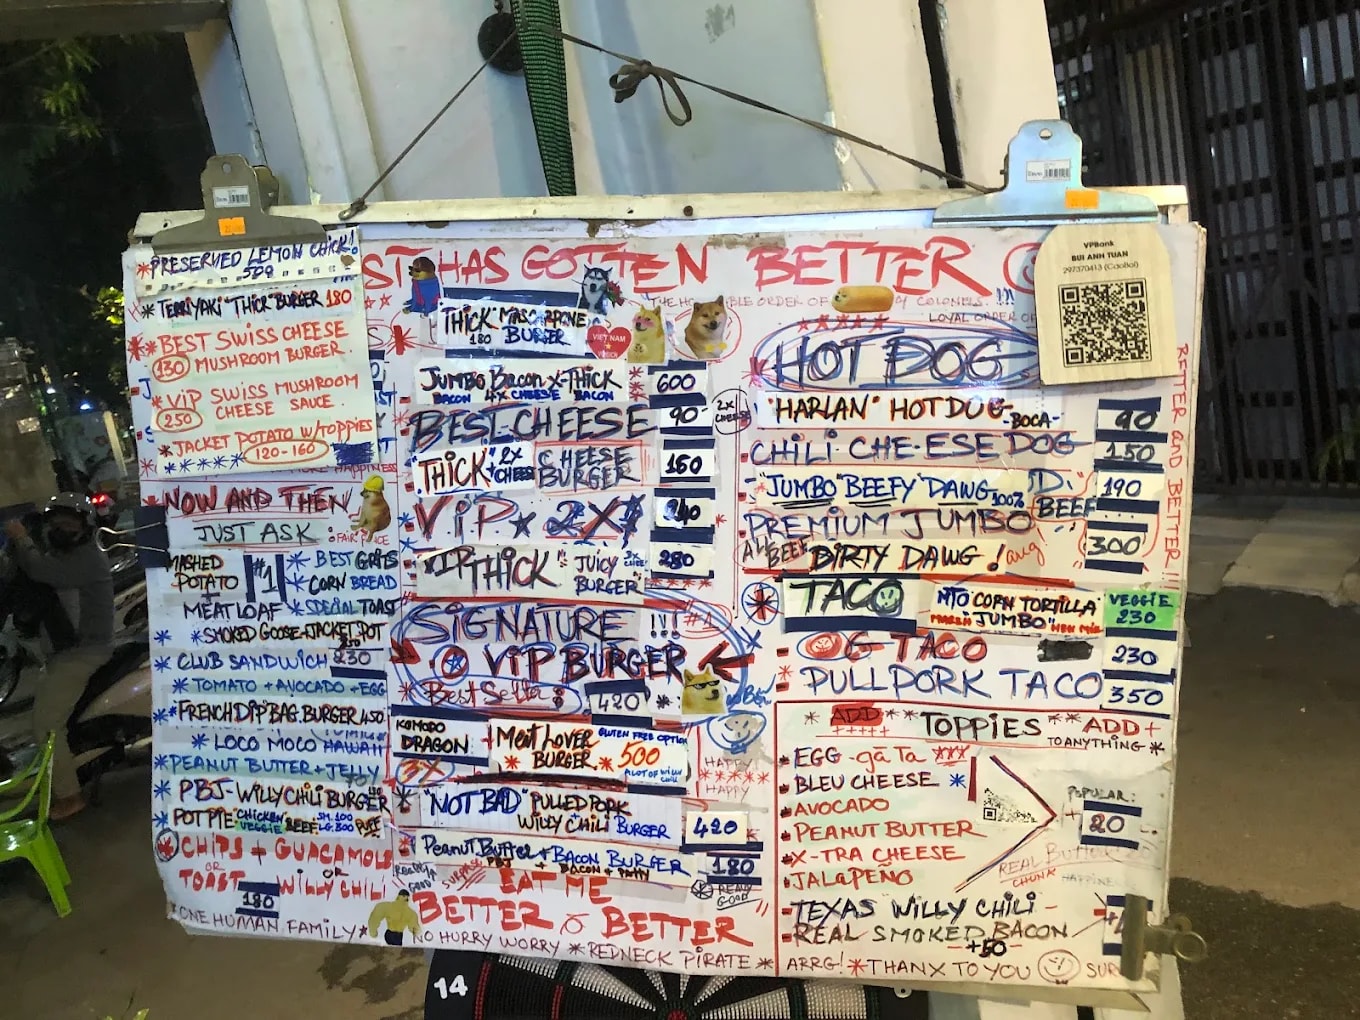 PRESERVED LEMON CHICK!
500
TERRIYAKI "THICK" BURGER 180
BEST SWISS CHEESE
130 MUSHROOM BURGER.
VIP SWISS MUSHROOM
250 CHEESE SAUCE.
JACKET POTATO W/TOPPIES
120-160
NOW AND THEN
JUST ASK
MASHED
POTATO #1
+
MEATLOAF
BEST GRITS
CORN BREAD
SPECIAL TOAST
SMOKED GOOSE-JACKET POT
CLUB SANDWICH 230
TOMATO + AVOCADO + EGG
FRENCH DIP BAG. BURGER 450
LOCO MOCO HAWAII
PEANUT BUTTER + JELLY
PBJ-WILLY CHILI BURGER
POT PIE CHICKEN VEGGIE BEEF SM.100 LG.300 PUFF
CHIPS + GUACAMOLE
OR OR
TOAST WILLY CHILI
180
ONE HUMAN FAMILY
HAS GOTTEN BETTER
COLONELS. !!!
THICK MASCARPONE
180 BURGER
VIET NAM
JUMBO BACON X-THICK 600
BACON 4X CHEESE BACON
BEST CHEESE 90
2X CHEESE
"THICK" 2X CHEESE CHEESE BURGER 150
VIP 2X 240
VIP THICK" JUICY BURGER 280
SIGNATURE !!! #1
VIP BURGER
Best Seller: 420
KOMODO
DRAGON
3X
MEAT LOVER GLUTEN FREE OPTION
BURGER. 500
A LOT OF WILLY CHILI
HAPPY
HAPPY
"NOT BAD" PULLED PORK
WILLY CHILI BURGER 420
Peanut Butter + BACON BURGER 180
PBJ + BACON + PATTY
REAL GOOD
EAT ME
BETTER & BETTER
NO HURRY WORRY REDNECK PIRATE ARRG! THANX TO YOU
14
VPBank
BUI ANH TUAN
297370413 (CaoBoi)
HOT DOG
"HARLAN" HOTDOG -BOCA- 90
CHILI CHE-ESE DOG 150
"JUMBO "BEEFY" DAWG 100% BEEF 190
PREMIUM JUMBO
ALL BEEF DIRTY DAWG ! 300
TACO NTO CORN TORTILLA VEGGIE
"JUMBO" 230
OG TACO 230
PULLPORK TACO 350
BETTER AND BETTER !!!
ADD TOPPIES ADD +
TO ANYTHING
EGG - gà Ta
BLEU CHEESE
AVOCADO POPULAR:
PEANUT BUTTER + 20
X-TRA CHEESE
JALAPEÑO
TEXAS WILLY CHILI -
REAL SMOKED BACON
+50